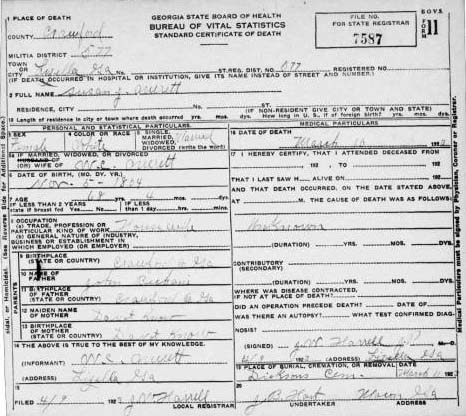 1 PLACE OF DEATH
GEORGIA STATE BOARD OF HEALTH
BUREAU OF VITAL STATISTICS
STANDARD CERTIFICATE OF DEATH
FILE NO.
FOR STATE REGISTRAR
7587
FORM
11
COUNTY Crawford
MILITIA DISTRICT 577
TOWN OR CITY Lizella Ga No. ST. REG. DIST. NO. 577 REGISTERED NO.
(IF DEATH OCCURRED IN HOSPITAL OR INSTITUTION, GIVE ITS NAME INSTEAD OF STREET AND NUMBER.)
2 FULL NAME Susan J. Averett
RESIDENCE, CITY No. ST. (IF NON-RESIDENT GIVE CITY OR TOWN AND STATE)
Length of residence in city or town where death occurred yrs. mos. ds. How long in U. S., if of foreign birth? yrs. mos. ds.
PERSONAL AND STATISTICAL PARTICULARS.
3 SEX Female
COLOR OR RACE White
SINGLE, MARRIED, WIDOWED, DIVORCED (write the word) Married
IF MARRIED, WIDOWED, OR DIVORCED
(OR) WIFE OF Averett
DATE OF BIRTH, (MO. DY. YR.)
Nov. 5 - 1854
AGE 68 4
IF LESS THAN 2 YEARS state if breast fed Yes No
If less than 1 day hrs. min.
OCCUPATION
(a) TRADE, PROFESSION OR PARTICULAR KIND OF WORK
(b) GENERAL NATURE OF INDUSTRY, BUSINESS OR ESTABLISHMENT IN WHICH EMPLOYED (OR EMPLOYER)
9 BIRTHPLACE (STATE OR COUNTRY) Crawford Co Ga
10 NAME OF FATHER John
11 BIRTHPLACE OF FATHER (STATE OR COUNTRY) Crawford Co Ga
12 MAIDEN NAME OF MOTHER Dont Know
13 BIRTHPLACE OF MOTHER (STATE OR COUNTRY) Dont Know
14 THE ABOVE IS TRUE TO THE BEST OF MY KNOWLEDGE.
(INFORMANT) Averett
(ADDRESS) Lizella Ga
15 FILED 4/9 192 J W Harrell LOCAL REGISTRAR
MEDICAL PARTICULARS.
16 DATE OF DEATH March 10 192
17 I HEREBY CERTIFY, THAT I ATTENDED DECEASED FROM
192 TO 192
THAT I LAST SAW H ALIVE ON 192
AND THAT DEATH OCCURRED, ON THE DATE STATED ABOVE,
AT M. THE CAUSE OF DEATH WAS AS FOLLOWS:
Unknown
(DURATION) YRS. MOS. DS.
CONTRIBUTORY (SECONDARY)
(DURATION) YRS. MOS. DS.
WHERE WAS DISEASE CONTRACTED, IF NOT AT PLACE OF DEATH?
DID AN OPERATION PRECEDE DEATH? DATE OF
WAS THERE AN AUTOPSY? WHAT TEST CONFIRMED DIAGNOSIS?
(SIGNED) J. W. Harrell
4/9 (ADDRESS) Lizella Ga
19 PLACE OF BURIAL, CREMATION, OR REMOVAL DATE
Dickson Cem. March 11 192
UNDERTAKER J B Hart
ADDRESS Macon Ga